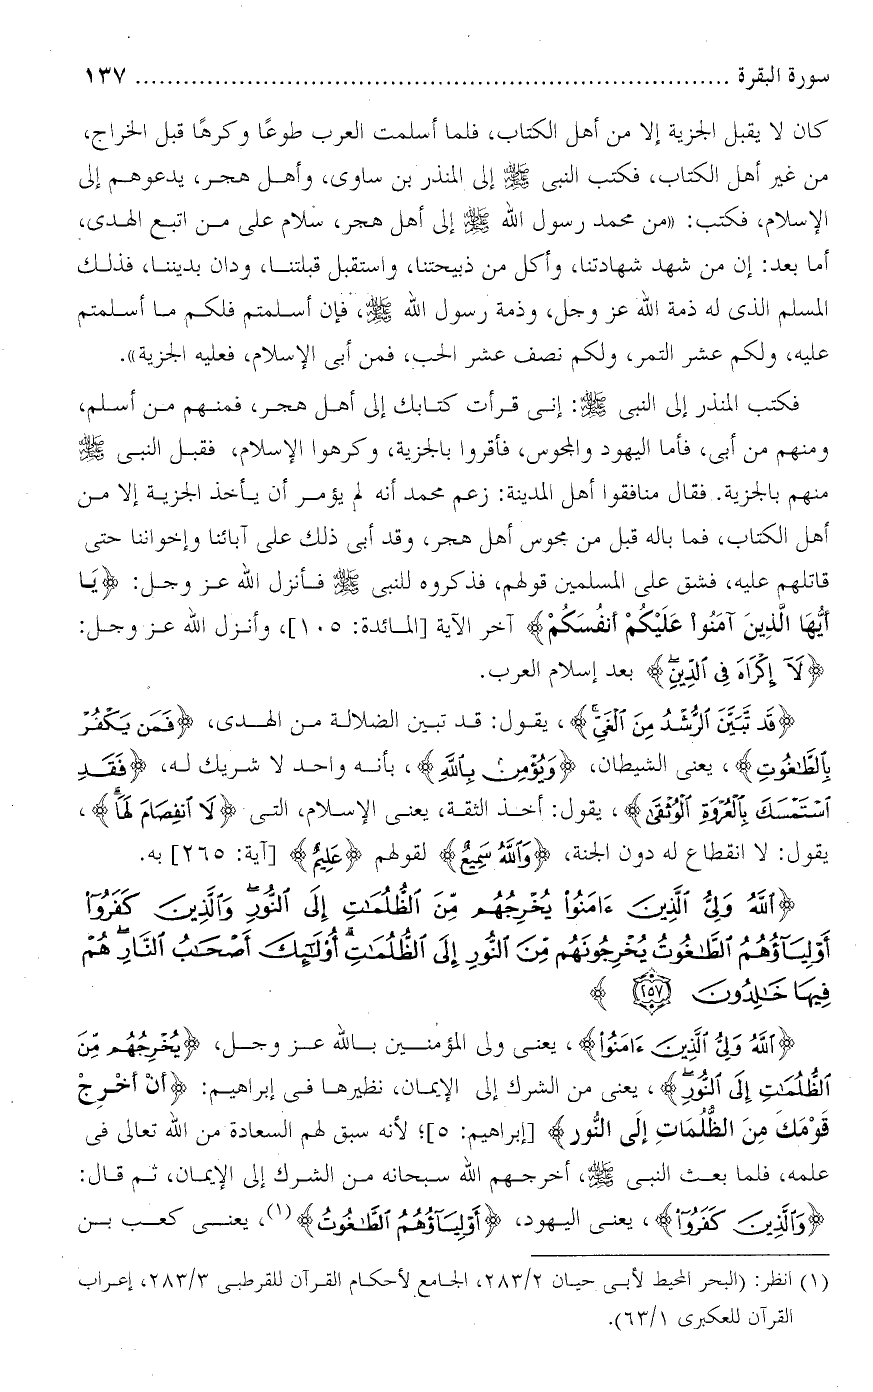 سورة البقرة ........................................................................... ١٣٧
كان لا يقبل الجزية إلا من أهل الكتاب، فلما أسلمت العرب طوعًا وكرهًا قبل الخراج،
من غير أهل الكتاب، فكتب النبى ﷺ إلى المنذر بن ساوى، وأهل هجر، يدعوهم إلى
الإسلام، فكتب: «من محمد رسول الله ﷺ إلى أهل هجر، سلام على من اتبع الهدى،
أما بعد: إن من شهد شهادتنا، وأكل من ذبيحتنا، واستقبل قبلتنا، ودان بديننا، فذلك
المسلم الذى له ذمة الله عز وجل، وذمة رسول الله ﷺ، فإن أسلمتم فلكم ما أسلمتم
عليه، ولكم عشر التمر، ولكم نصف عشر الحب، فمن أبى الإسلام، فعليه الجزية».
فكتب المنذر إلى النبى ﷺ: إنى قرأت كتابك إلى أهل هجر، فمنهم من أسلم،
ومنهم من أبى، فأما اليهود والمجوس، فأقروا بالجزية، وكرهوا الإسلام، فقبل النبى ﷺ
منهم بالجزية. فقال منافقوا أهل المدينة: زعم محمد أنه لم يؤمر أن يأخذ الجزية إلا من
أهل الكتاب، فما باله قبل من مجوس أهل هجر، وقد أبى ذلك على آبائنا وإخواننا حتى
قاتلهم عليه، فشق على المسلمين قولهم، فذكروه للنبى ﷺ فأنزل الله عز وجل: ﴿يَا
أَيُّهَا الَّذِينَ آمَنُواْ عَلَيْكُمْ أَنفُسَكُمْ﴾ آخر الآية [المائدة: ١٠٥]، وأنزل الله عز وجل:
﴿لَآ إِكْرَاهَ فِى ٱلدِّينِۖ﴾ بعد إسلام العرب.
﴿قَد تَّبَيَّنَ ٱلرُّشْدُ مِنَ ٱلْغَىِّۚ﴾، يقول: قد تبين الضلالة من الهدى، ﴿فَمَن يَكْفُرْ
بِٱلطَّٰغُوتِ﴾، يعنى الشيطان، ﴿وَيُؤْمِنۢ بِٱللَّهِ﴾، بأنه واحد لا شريك له، ﴿فَقَدِ
ٱسْتَمْسَكَ بِٱلْعُرْوَةِ ٱلْوُثْقَىٰ﴾، يقول: أخذ الثقة، يعنى الإسلام، التى ﴿لَا ٱنفِصَامَ لَهَاۗ﴾،
يقول: لا انقطاع له دون الجنة، ﴿وَٱللَّهُ سَمِيعٌ﴾ لقولهم ﴿عَلِيمٌ﴾ [آية: ٢٦٥] به.
﴿ٱللَّهُ وَلِىُّ ٱلَّذِينَ ءَامَنُواْ يُخْرِجُهُم مِّنَ ٱلظُّلُمَٰتِ إِلَى ٱلنُّورِۖ وَٱلَّذِينَ كَفَرُوٓاْ
أَوْلِيَآؤُهُمُ ٱلطَّٰغُوتُ يُخْرِجُونَهُم مِّنَ ٱلنُّورِ إِلَى ٱلظُّلُمَٰتِۗ أُوْلَٰٓئِكَ أَصْحَٰبُ ٱلنَّارِۖ هُمْ
فِيهَا خَٰلِدُونَ ٢٥٧ ﴾
﴿ٱللَّهُ وَلِىُّ ٱلَّذِينَ ءَامَنُواْ﴾، يعنى ولى المؤمنين بالله عز وجل، ﴿يُخْرِجُهُم مِّنَ
ٱلظُّلُمَٰتِ إِلَى ٱلنُّورِۖ﴾، يعنى من الشرك إلى الإيمان، نظيرها فى إبراهيم: ﴿أَنْ أَخْرِجْ
قَوْمَكَ مِنَ الظُّلُمَاتِ إِلَى النُّورِ﴾ [إبراهيم: ٥]؛ لأنه سبق لهم السعادة من الله تعالى فى
علمه، فلما بعث النبى ﷺ، أخرجهم الله سبحانه من الشرك إلى الإيمان، ثم قال:
﴿وَٱلَّذِينَ كَفَرُوٓاْ﴾، يعنى اليهود، ﴿أَوْلِيَآؤُهُمُ ٱلطَّٰغُوتُ﴾(١)، يعنى كعب بن
(١) انظر: (البحر المحيط لأبى حيان ٢٨٣/٢، الجامع لأحكام القرآن للقرطبى ٢٨٣/٣، إعراب
القرآن للعكبرى ٦٣/١).